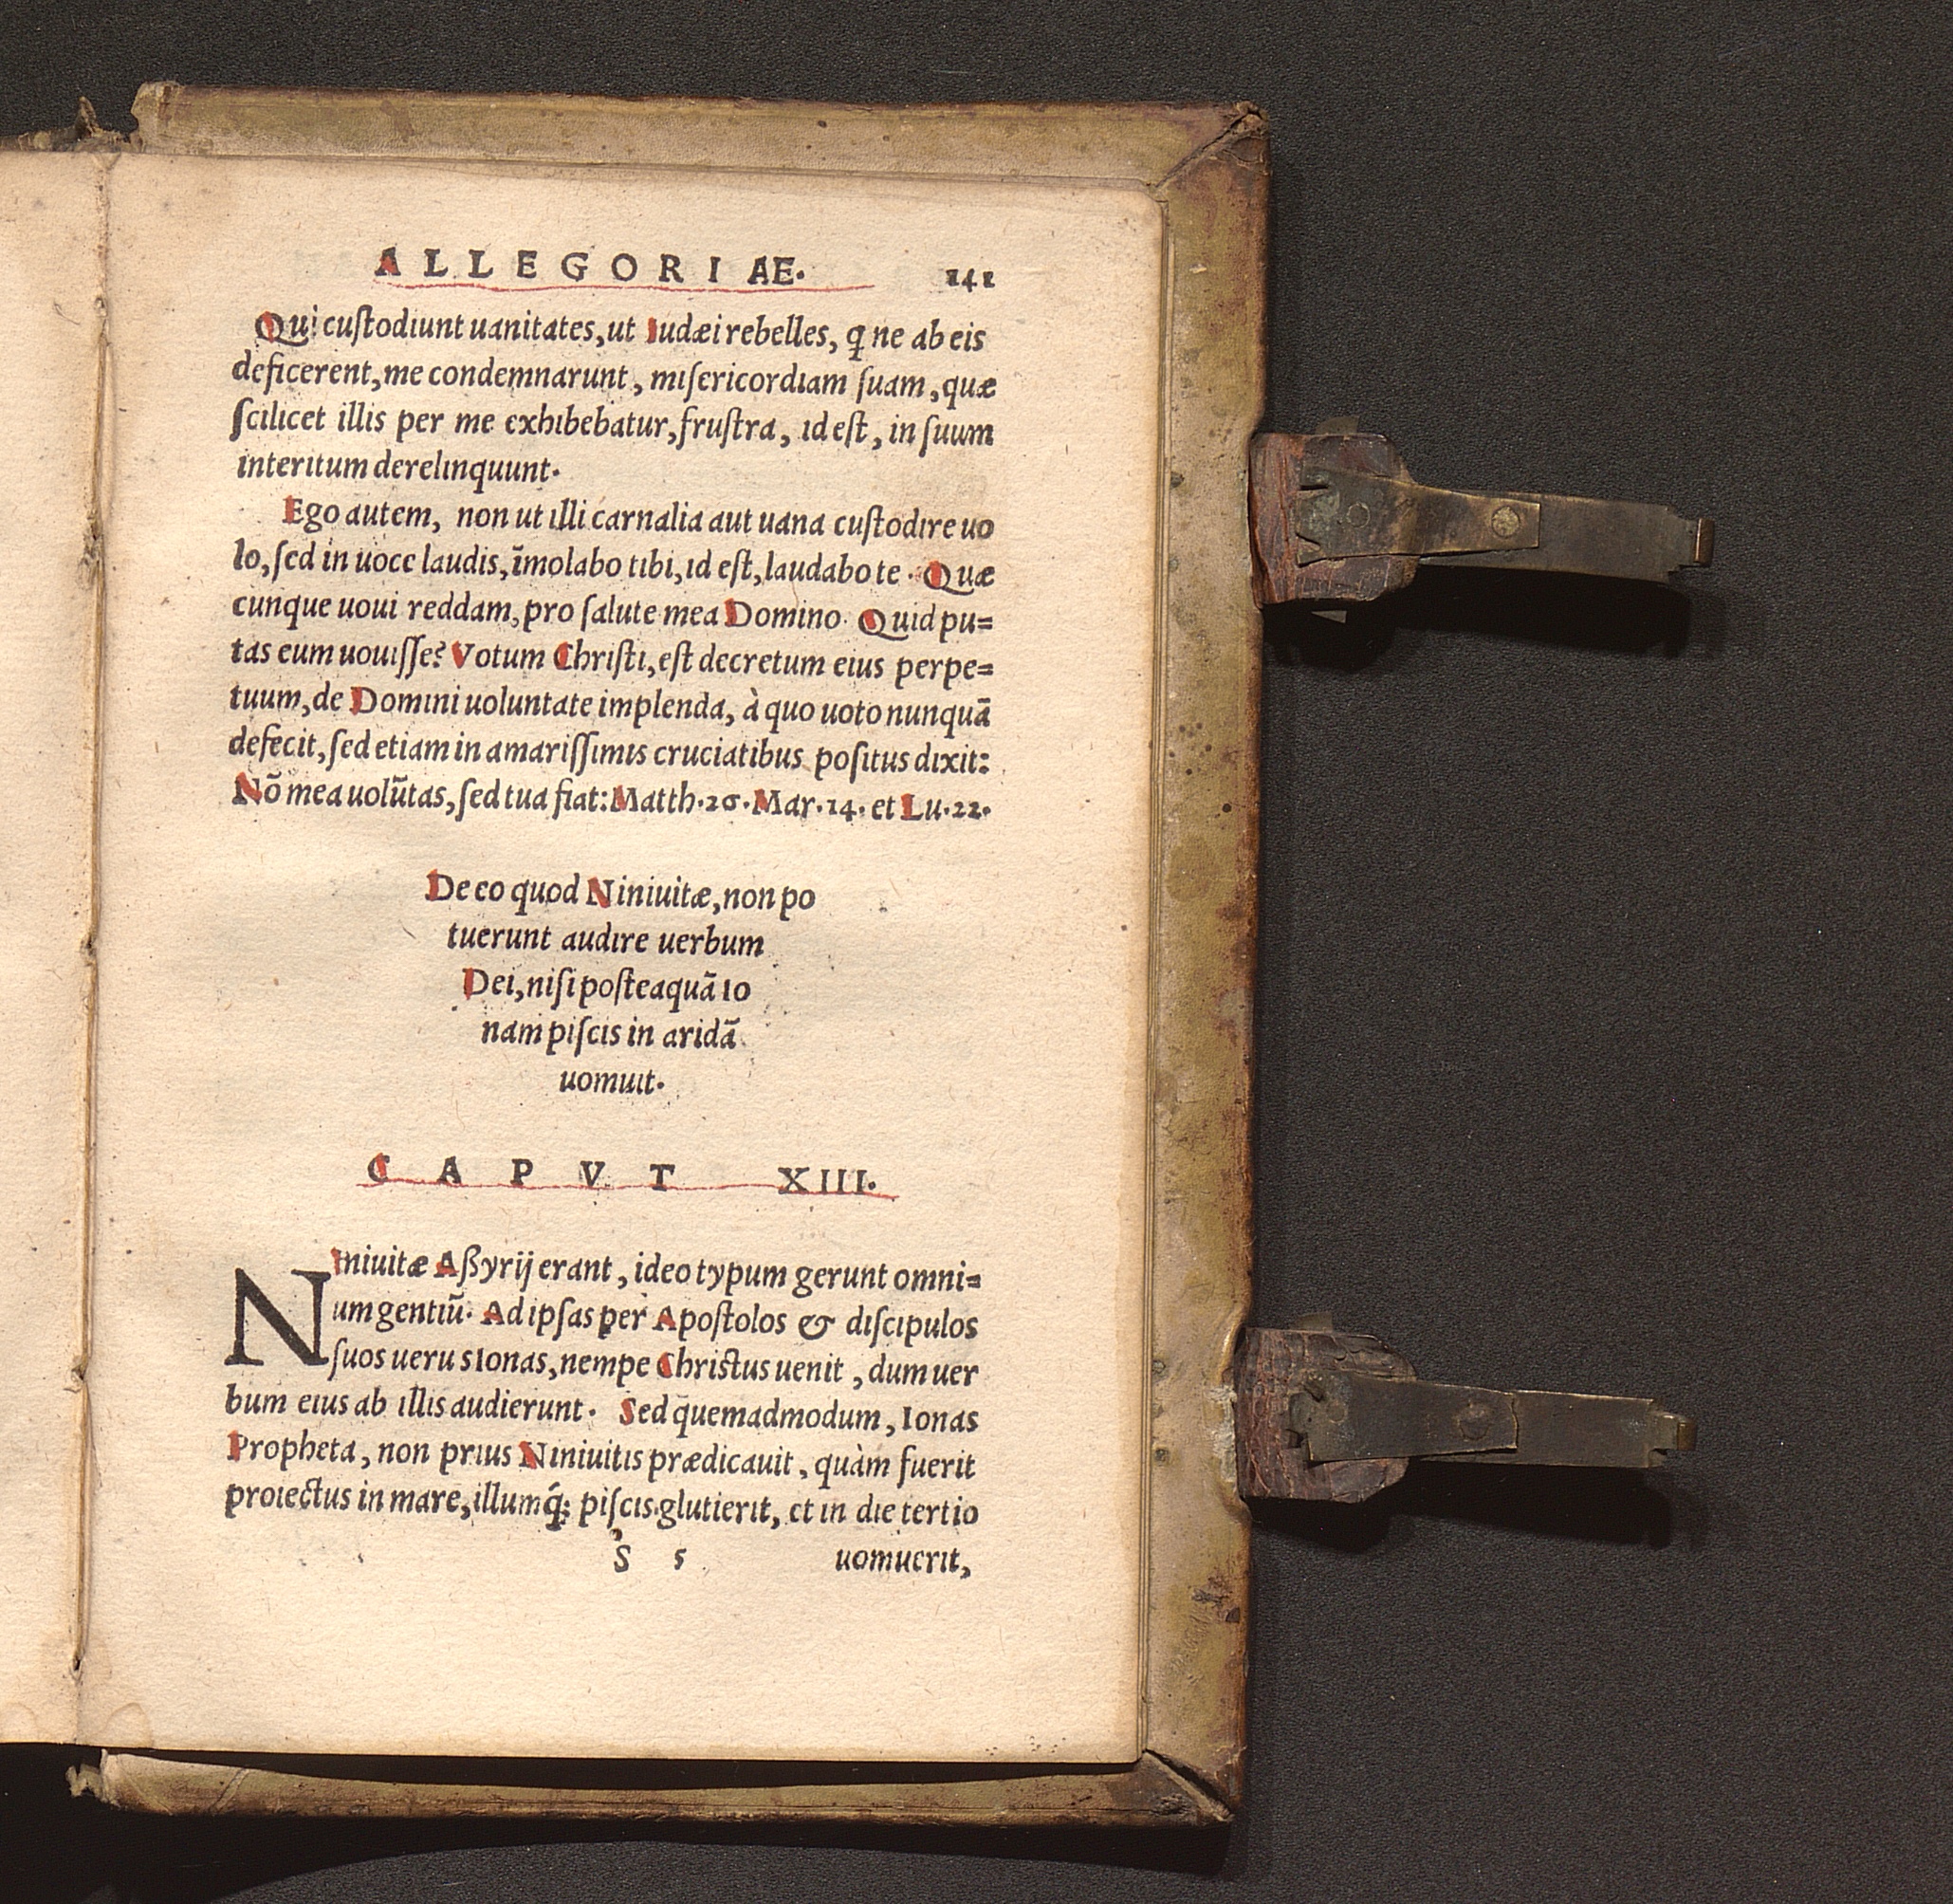 ALLEGORIAE. 141
Qui custodiunt uanitates, ut Iudæi rebelles, q ne ab eis
deficerent, me condemnarunt, misericordiam suam, quæ
scilicet illis per me exhibebatur, frustra, id est, in suum
interitum derelinquunt.
Ego autem, non ut illi carnalia aut uana custodire uo
lo, sed in uoce laudis, īmolabo tibi, id est, laudabo te. Quæ
cunque uoui reddam, pro salute mea Domino. Quid pu=
tas eum uouisse? Votum Christi, est decretum eius perpe=
tuum, de Domini uoluntate implenda, à quo uoto nunquā
defecit, sed etiam in amarissimis cruciatibus positus dixit:
Nō mea uolūtas, sed tua fiat: Matth. 26. Mar. 14. et Lu. 22.
De eo quod Niniuitæ, non po
tuerunt audire uerbum
Dei, nisi posteaquā Io
nam piscis in aridā
uomuit.
CAPVT XIII.
NIniuitæ Aßyrij erant, ideo typum gerunt omni=
um gentiū. Ad ipsas per Apostolos & discipulos
suos uerus Ionas, nempe Christus uenit, dum uer
bum eius ab illis audierunt. Sed quemadmodum, Ionas
Propheta, non prius Niniuitis prædicauit, quàm fuerit
proiectus in mare, illumq́; piscis glutierit, et in die tertio
S 5 uomuerit,